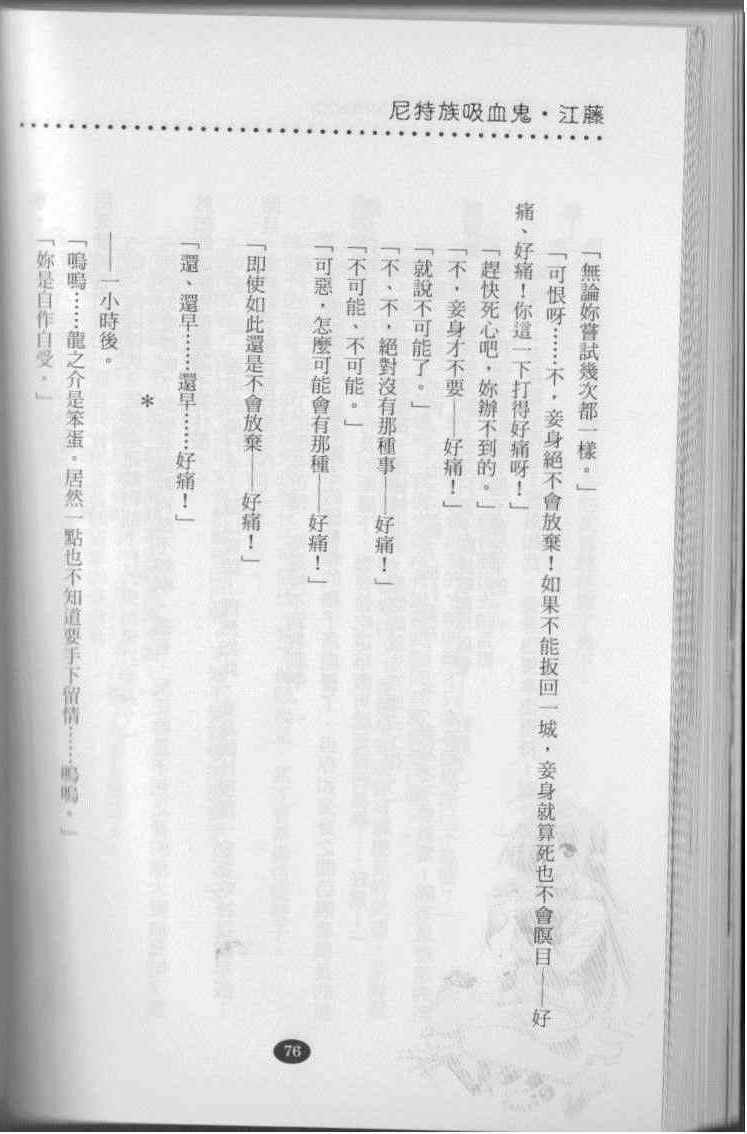 尼特族吸血鬼・江藤
「無論妳嘗試幾次都一樣。」
「可恨呀……不，妾身絕不會放棄！如果不能扳回一城，妾身就算死也不會瞑目——好
痛、好痛！你這一下打得好痛呀！」
「趕快死心吧，妳辦不到的。」
「不，妾身才不要——好痛！」
「就說不可能了。」
「不、不，絕對沒有那種事——好痛！」
「不可能、不可能。」
「可惡，怎麼可能會有那種——好痛！」
「即使如此還是不會放棄——好痛！」
「還、還早……還早……好痛！」
＊
——一小時後。
「嗚嗚……龍之介是笨蛋。居然一點也不知道要手下留情……嗚嗚。」
「妳是自作自受。」
76